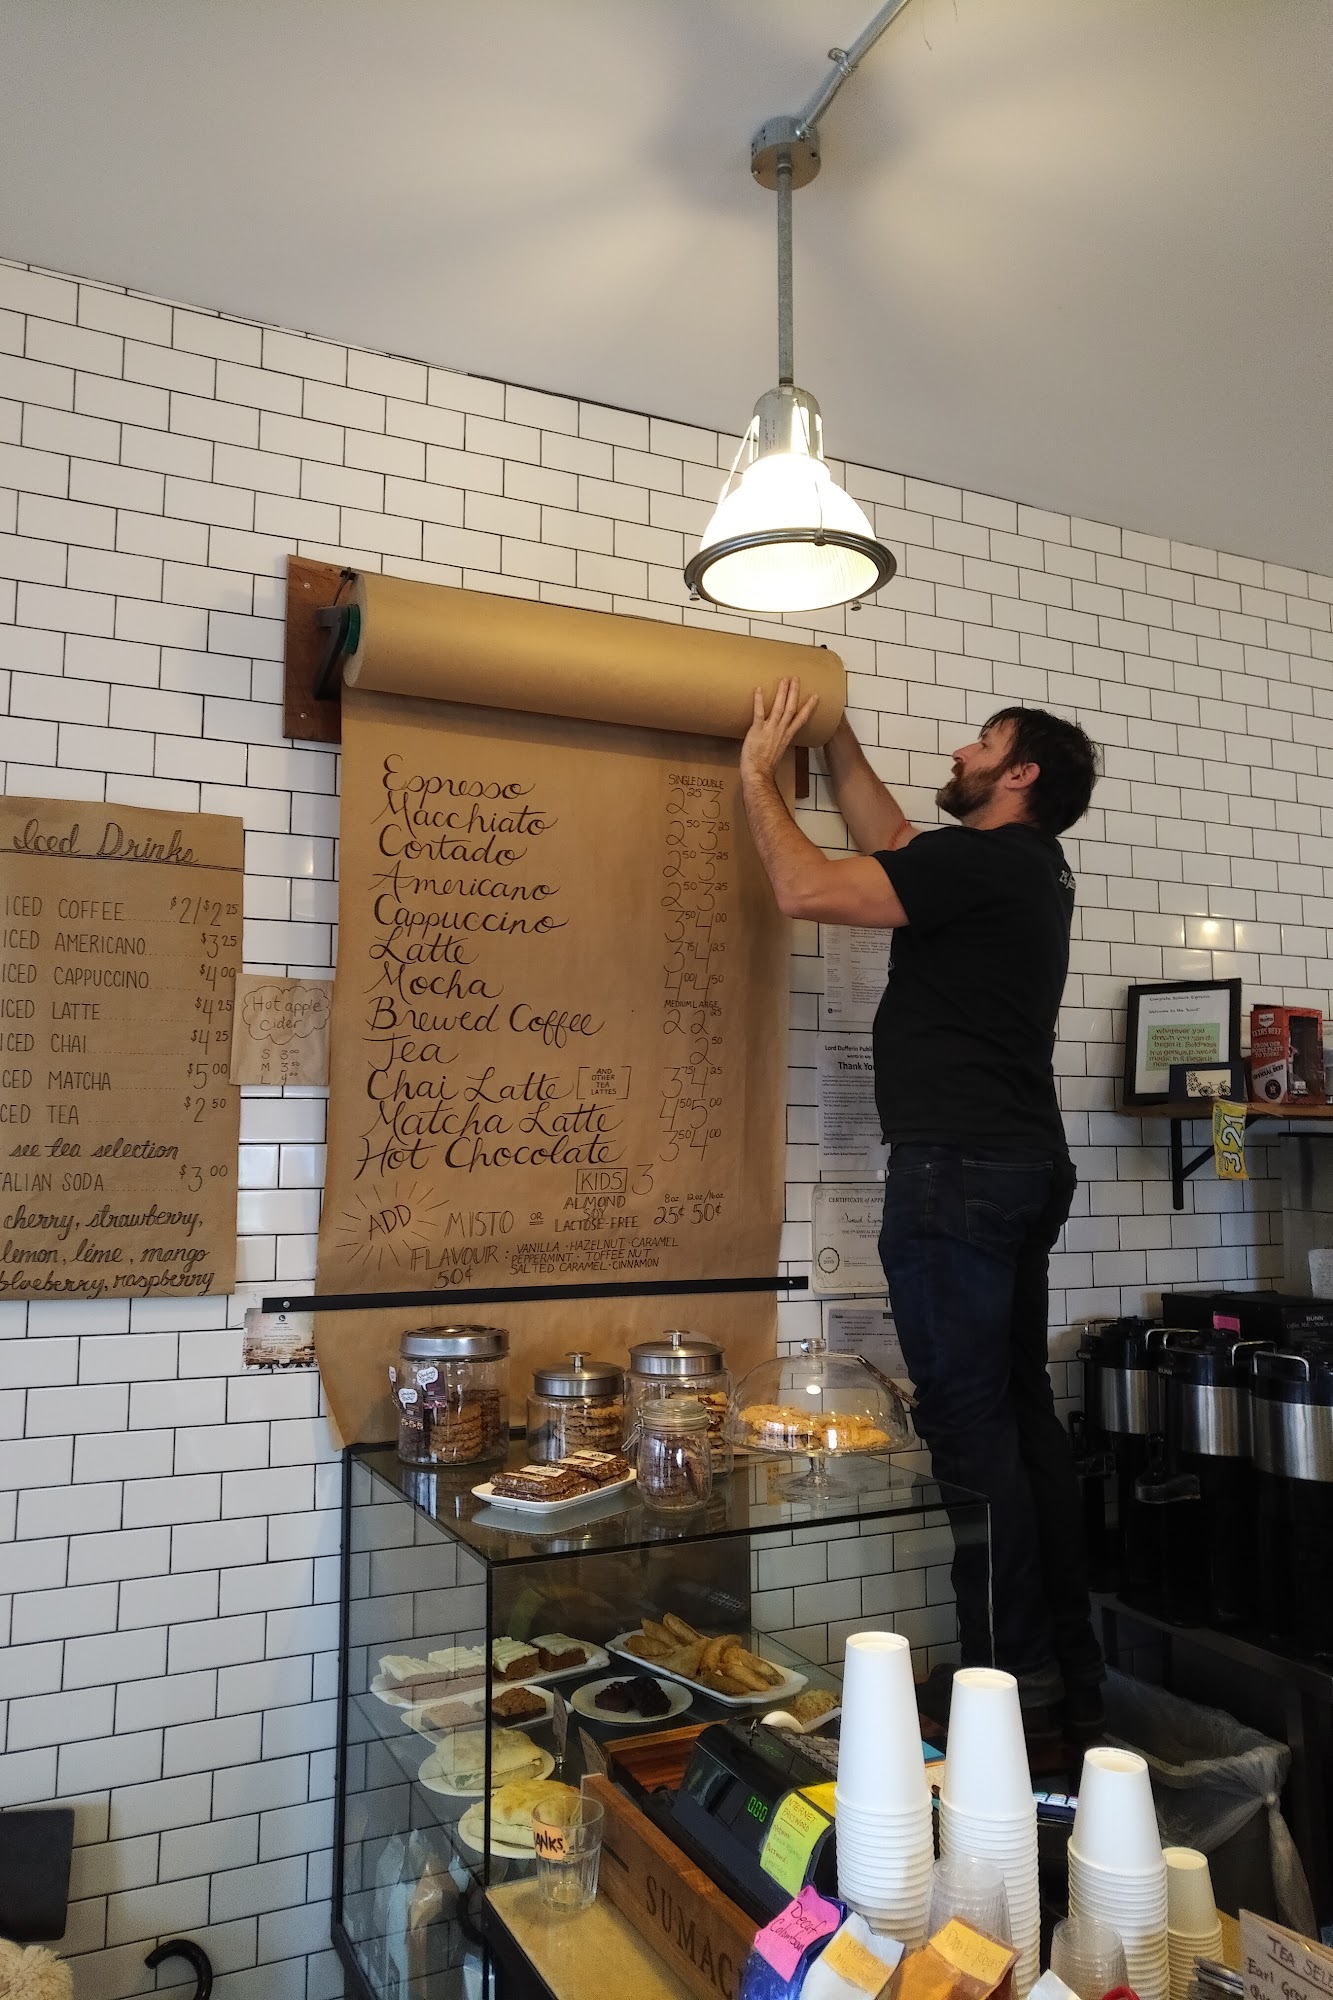 Iced Drinks
ICED COFFEE $2/$2 25
ICED AMERICANO $3 25
ICED CAPPUCCINO $4 00
ICED LATTE $4 25
ICED CHAI $4 25
CED MATCHA $5 00
CED TEA $2 50
see tea selection
TALIAN SODA $3.00
cherry, strawberry,
lemon, lime, mango
blueberry, raspberry
Hot apple
Cider
S 3.00
M 3.50
SINGLE DOUBLE
Espresso 2 25 3
Macchiato 2 50 3 25
Cortado 2 50 3 25
Americano 2 50 3 25
Cappuccino 3 50 4 00
Latte 3 75 4 25
Mocha 4 00 4 50
MEDIUM LARGE
Brewed Coffee 2 2 25
Tea 2 50
Chai Latte [AND OTHER TEA LATTES] 3 75 4 25
Matcha Latte 4 50 5 00
Hot Chocolate 3 50 4 00
KIDS 3
ADD MISTO OR ALMOND SOY LACTOSE-FREE
8oz 12oz/16oz
25¢ 50¢
FLAVOUR: VANILLA · HAZELNUT · CARAMEL
PEPPERMINT · TOFFEE NUT
50¢ SALTED CARAMEL · CINNAMON
Lord Dufferin Publi
wants to say
Thank You
CERTIFICATE of APPR
Welcome to the
wherever you
321
BUNN
0.00
INTERNET
PASSWORD
ANKS.
SUMAC
Decaf
Colombian
TEA SELE
Earl Gre